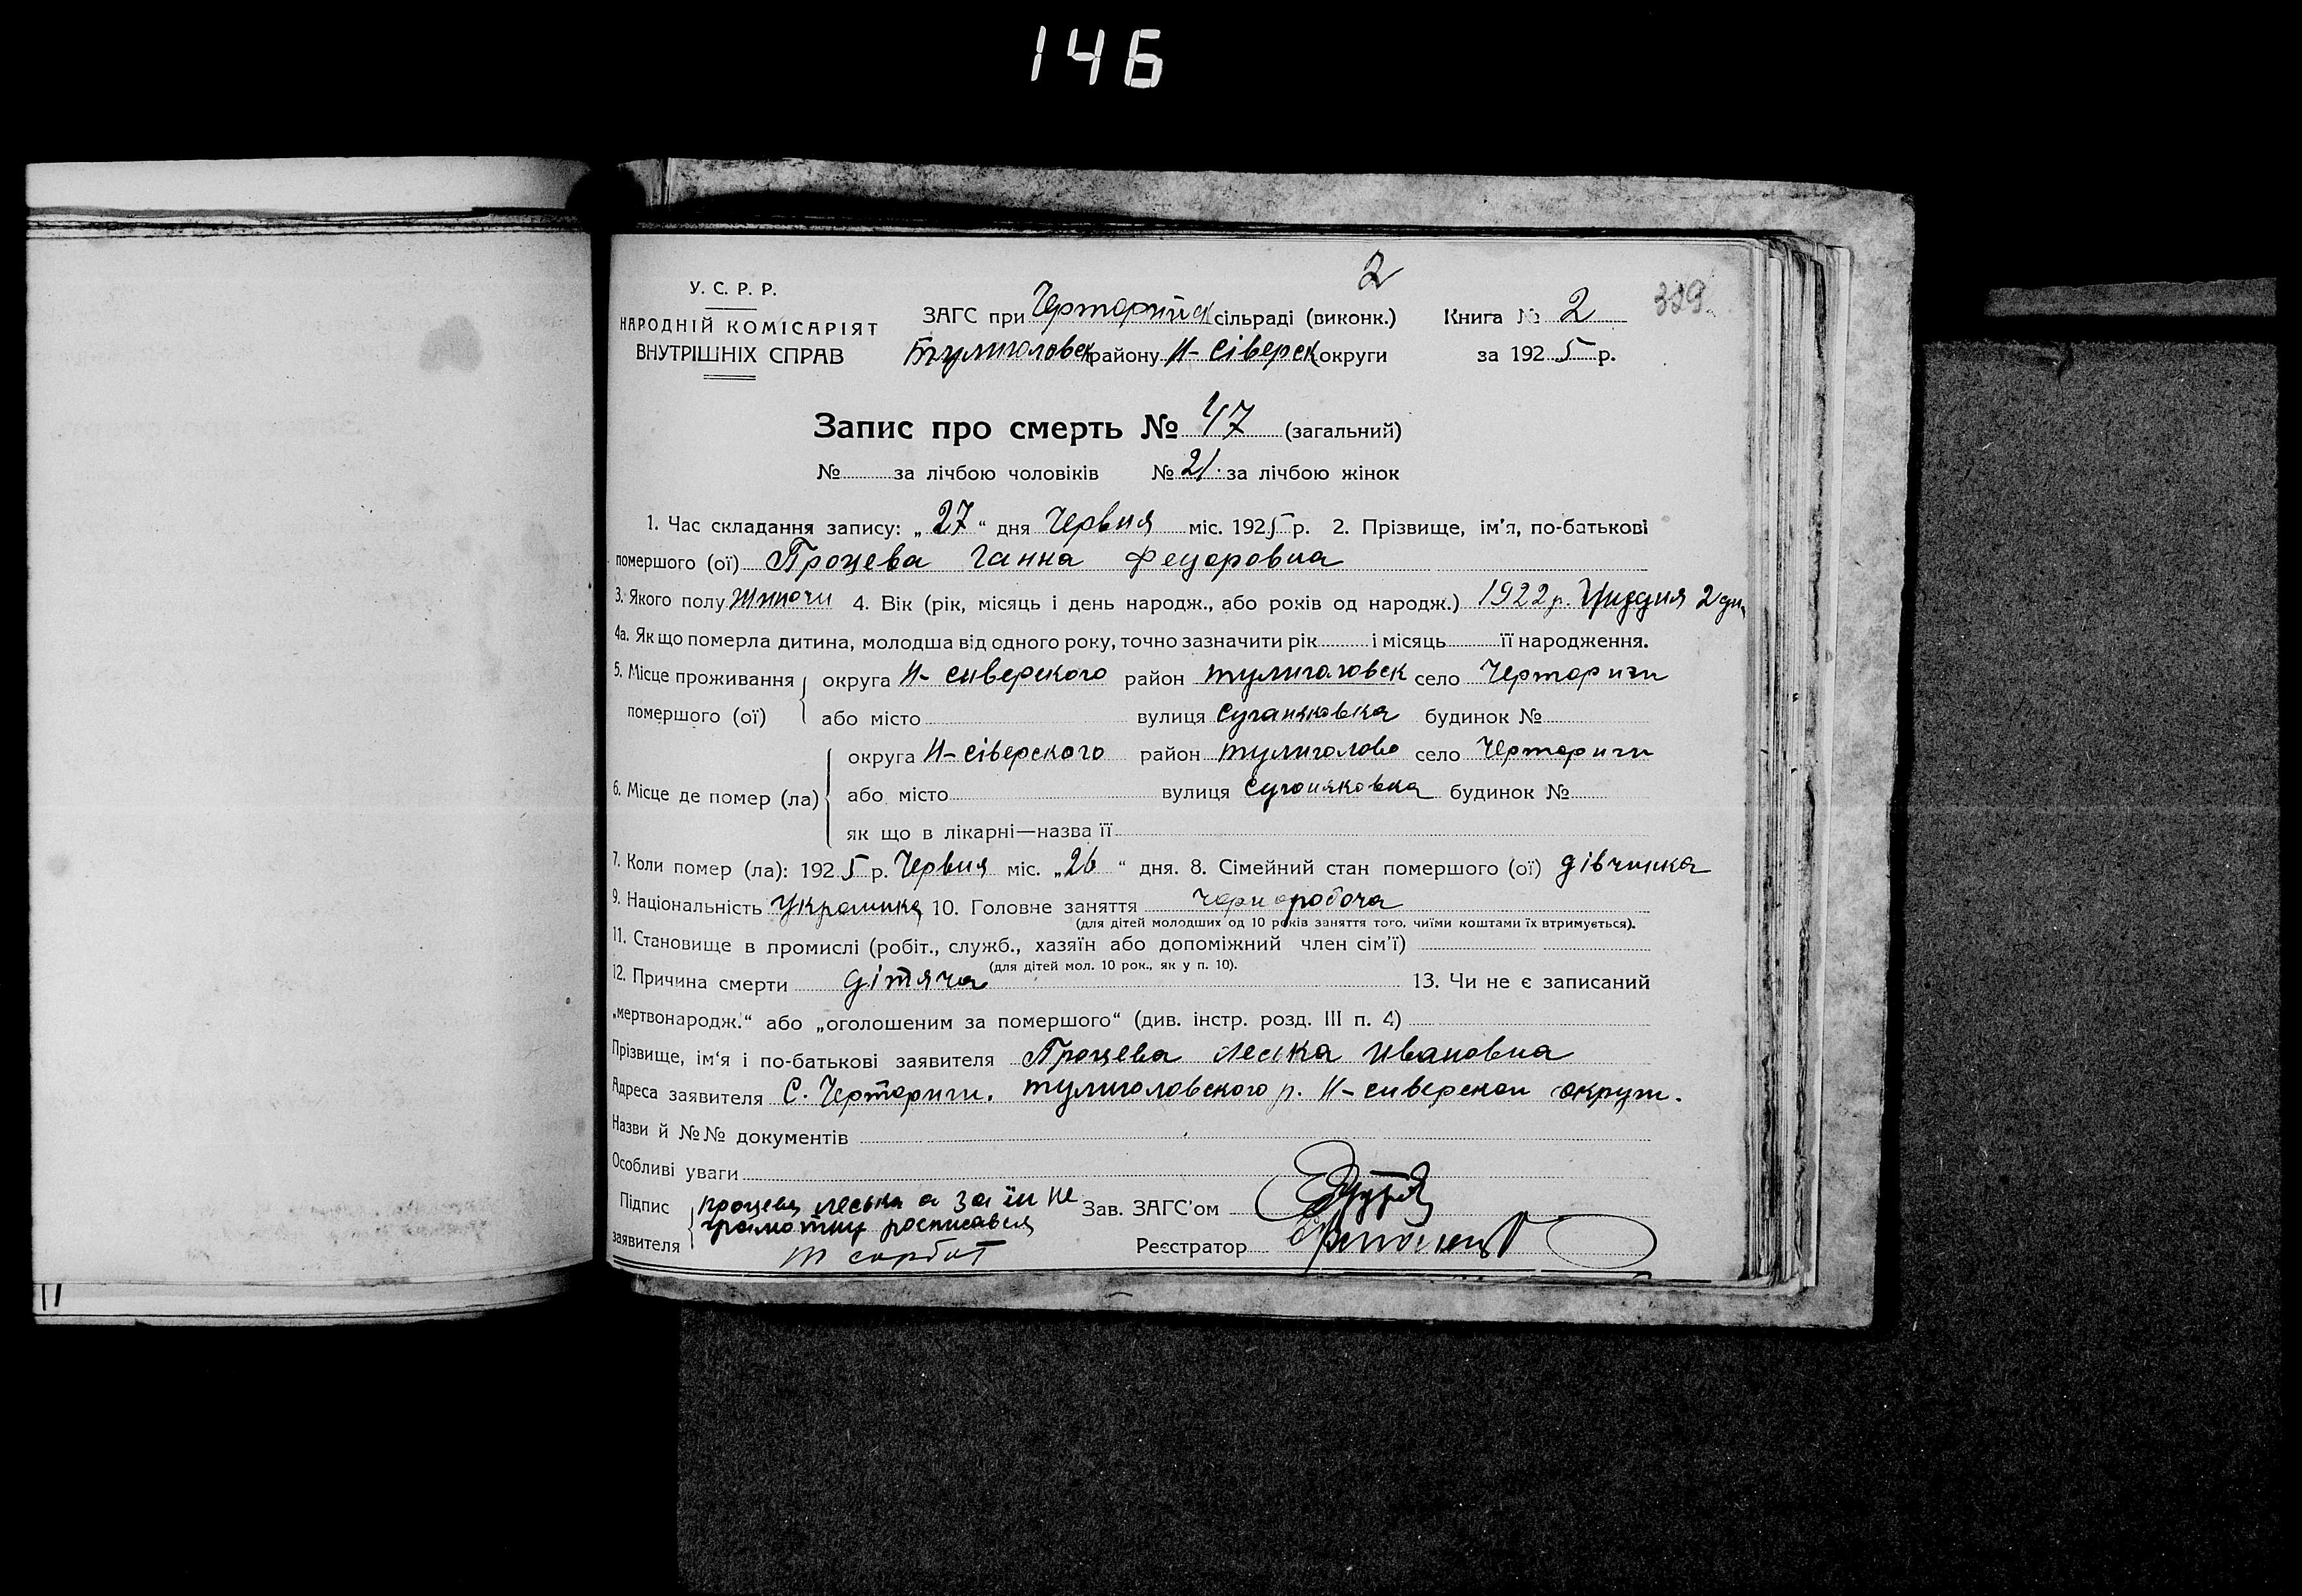 146
2
У. С. Р. Р.
НАРОДНІЙ КОМІСАРІЯТ
ВНУТРІШНІХ СПРАВ
ЗАГС при Черторийск сільраді (виконк.) Книга № 2
Тулиголовск району Н-Сіверск округи за 1925 р.
Запис про смерть № 47 (загальний)
№ за лічбою чоловіків № 21 за лічбою жінок
1. Час складання запису: „27“ дня Червня міс. 1925 р. 2. Прізвище, ім'я, по-батькові
помершого (ої) Процева Ганна Федоровна
3. Якого полу Жиночи 4. Вік (рік, місяць і день народж., або років од народж.) 1922 р. Груддня 2 дн
4а. Як що померла дитина, молодша від одного року, точно зазначити рік і місяць її народження.
5. Місце проживання округа Н-сиверского район тулиголовск село Черториги
помершого (ої) або місто вулиця будинок №
округа Н-Сіверского район тулиголово село Черториги
6. Місце де помер (ла) або місто вулиця будинок №
як що в лікарні—назва її
7. Коли помер (ла): 1925 р. Червня міс. „26“ дня. 8. Сімейний стан помершого (ої) дівчинка
9. Національність Украинка 10. Головне заняття чорноробоча
(для дітей молодших од 10 років заняття того, чиїми коштами їх втримується).
11. Становище в промислі (робіт., служб., хазяїн або допоміжний член сім'ї)
(для дітей мол. 10 рок., як у п. 10).
12. Причина смерти дітяча 13. Чи не є записаний
„мертвонародж.“ або „оголошеним за помершого“ (див. інстр. розд. III п. 4)
Прізвище, ім'я і по-батькові заявителя Процева Леська Ивановна
Адреса заявителя С. Черториги. тулиголовского р. Н-сиверскои округи.
Назви й №№ документів
Особливі уваги
Підпис процева леська а за їи не
грамотну росписався
заявителя
Зав. ЗАГС'ом
Реєстратор